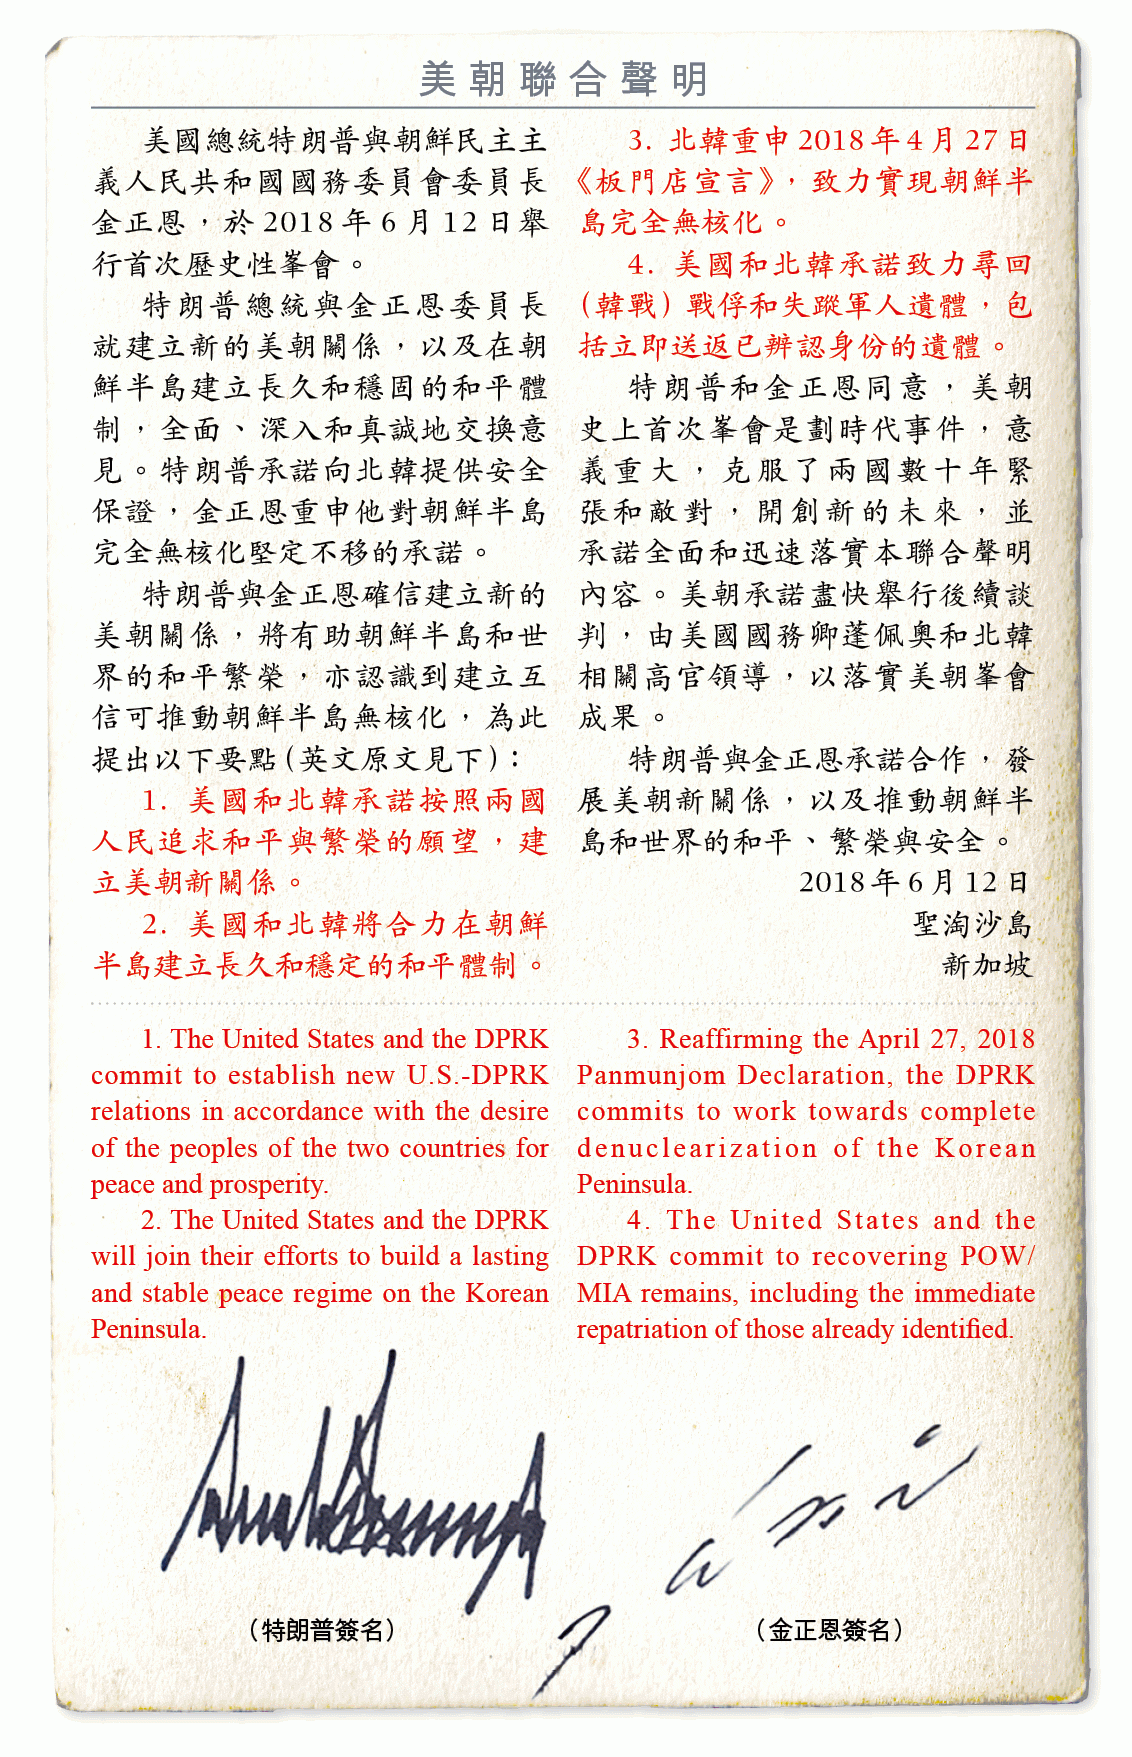 美朝聯合聲明
美國總統特朗普與朝鮮民主主
義人民共和國國務委員會委員長
金正恩，於 2018 年 6 月 12 日舉
行首次歷史性峯會。
特朗普總統與金正恩委員長
就建立新的美朝關係，以及在朝
鮮半島建立長久和穩固的和平體
制，全面、深入和真誠地交換意
見。特朗普承諾向北韓提供安全
保證，金正恩重申他對朝鮮半島
完全無核化堅定不移的承諾。
特朗普與金正恩確信建立新的
美朝關係，將有助朝鮮半島和世
界的和平繁榮，亦認識到建立互
信可推動朝鮮半島無核化，為此
提出以下要點（英文原文見下）：
1. 美國和北韓承諾按照兩國
人民追求和平與繁榮的願望，建
立美朝新關係。
2. 美國和北韓將合力在朝鮮
半島建立長久和穩定的和平體制。
3. 北韓重申 2018 年 4 月 27 日
《板門店宣言》，致力實現朝鮮半
島完全無核化。
4. 美國和北韓承諾致力尋回
（韓戰）戰俘和失蹤軍人遺體，包
括立即送返已辨認身份的遺體。
特朗普和金正恩同意，美朝
史上首次峯會是劃時代事件，意
義重大，克服了兩國數十年緊
張和敵對，開創新的未來，並
承諾全面和迅速落實本聯合聲明
內容。美朝承諾盡快舉行後續談
判，由美國國務卿蓬佩奧和北韓
相關高官領導，以落實美朝峯會
成果。
特朗普與金正恩承諾合作，發
展美朝新關係，以及推動朝鮮半
島和世界的和平、繁榮與安全。
2018 年 6 月 12 日
聖淘沙島
新加坡
1. The United States and the DPRK
commit to establish new U.S.-DPRK
relations in accordance with the desire
of the peoples of the two countries for
peace and prosperity.
2. The United States and the DPRK
will join their efforts to build a lasting
and stable peace regime on the Korean
Peninsula.
3. Reaffirming the April 27, 2018
Panmunjom Declaration, the DPRK
commits to work towards complete
denuclearization of the Korean
Peninsula.
4. The United States and the
DPRK commit to recovering POW/
MIA remains, including the immediate
repatriation of those already identified.
（特朗普簽名）
（金正恩簽名）